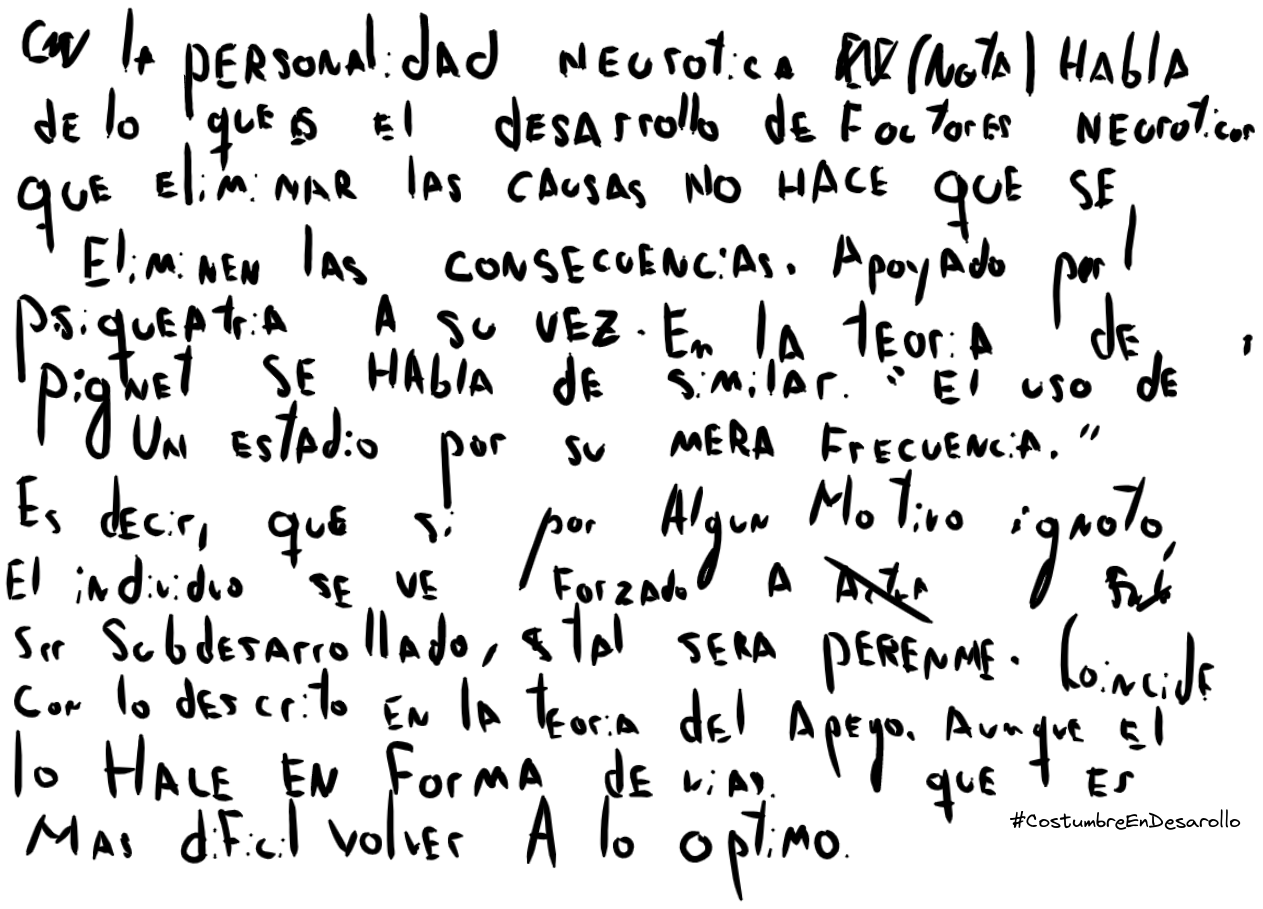 EN lA PERSONAlidAd NEUrotica (NotA) HAblA
dE lo que ES El dESArrollo dE FActorEs NEUroticos
quE EliMiNAR lAS CAUSAS NO HACE qUE SE
EliMiNEN lAS CONSECUENCiAS. Apoyado por l
psiqueAtriA A SU VEZ. En lA tEoriA dE
pigNEt SE HAblA dE SiMilAr. "El USO dE
UN EStAdio por SU MERA FrECUENCiA."
Es dECir, quE Si por AlgUN MotiVo ignoto,
El individuo SE VE ForZAdo A
Ser SubdESArrollAdo, tAl SERA pERENME. CoinCidE
Con lo dEScrito EN lA tEoriA dEl ApEgo. AunquE El
lo HACE EN ForMA dE ViAS. quE ES
MAS diFiCil VolVEr A lo optiMO.
#CostumbreEnDesarollo